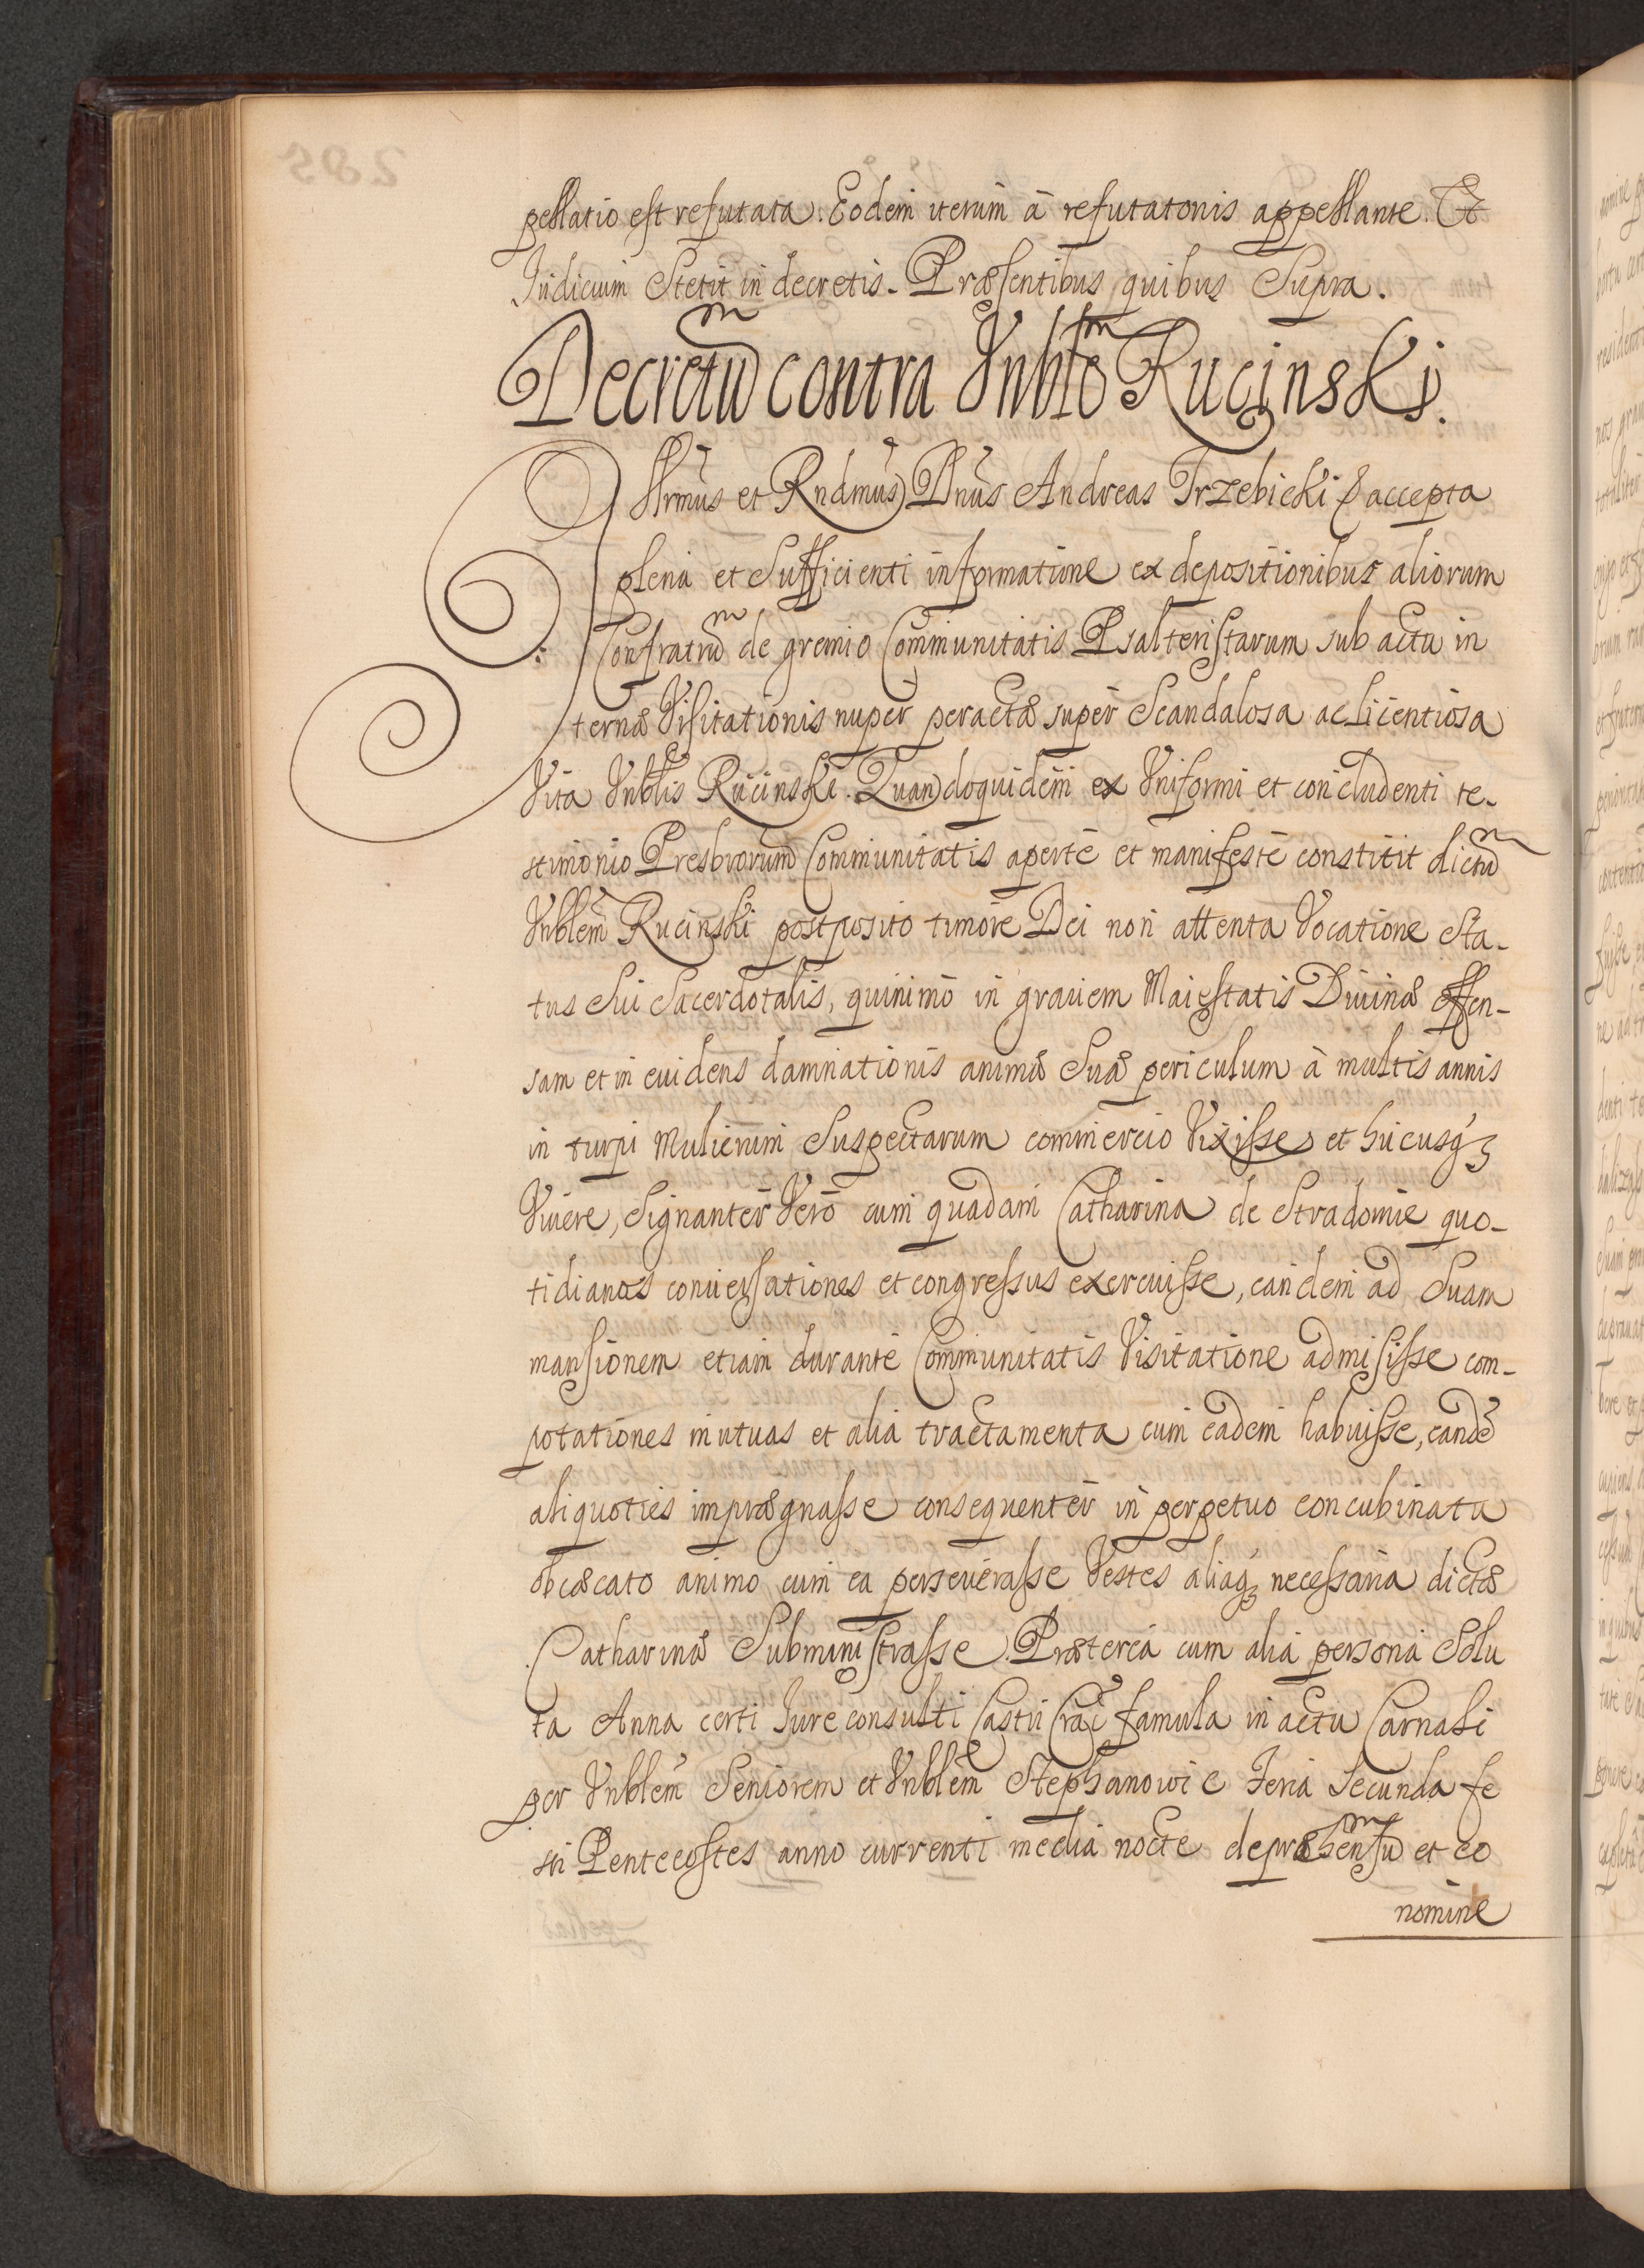 pellatio est refutata. Eodem iterum à refutatonis appellante. Et
Judicium Stetit in decretis. Præsentibus quibus Supra.
Decretu͞m contra Vnblem Rucinskj.
Illrmus et Rndmus Dnus Andreas Trzebicki & accepta
plena et Sufficienti informatione ex depositionibus aliorum
Confratru͞m de gremio Communitatis Psalteristarum sub actu in
ternæ Visitationis nuper peractæ super Scandalosa ac licentiosa
Vita Vnblis Rucinski. Quandoquidem ex Vniformi et concludenti te-
stimonio Presbrorum Communitatis aperte et manifeste constitit dictu͞m
Vnblem Rucinski postposito timore Dei non attenta Vocatione Sta-
tus Sui Sacerdotalis, quinimo in grauem Maiestatis Diuinæ offen-
sam et in euidens damnationis animæ Suæ periculum à multis annis
in turpi Mulierum Suspectarum commercio Vixisse et hucusq3
Viuere, Signanter Vero cum quadam Catharina de Stradomie quo-
tidianas conuersationes et congressus exercuisse, eandem ad Suam
mansionem etiam durante Communitatis Visitatione admisisse com-
potationes mutuas et alia tractamenta cum eadem habuisse, eandē
aliquoties imprægnasse consequenter in perpetuo concubinatu
obcæcato animo cum ea perseuerasse Vestes aliaq3 necessaria dictæ
Catharinæ Subministrasse. Præterea cum alia persona Solu
ta Anna certi Jureconsulti Castri Craĉ famula in actu Carnali
per Vnblem Seniorem et Vnblem Stephanowic Feria Secunda fe
sti Pentecostes anno currenti media nocte depræhensu͞m et eo
nomine